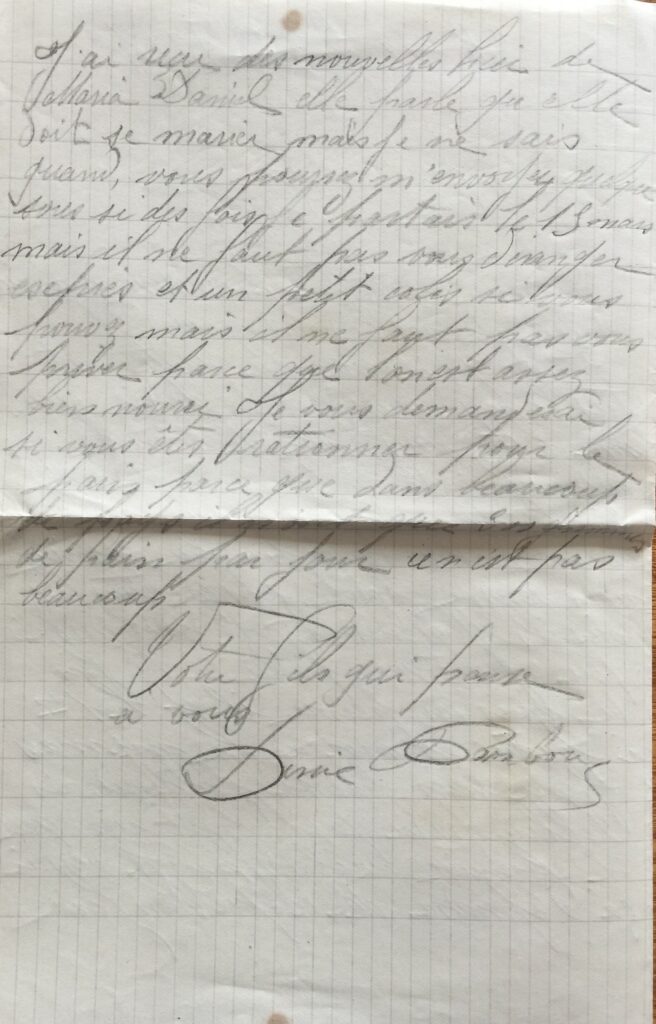 J'ai reçu des nouvelles hier de
Maria Daniel elle parle qu elle
doit se marier mais je ne sais
quand, vous pourrez m'envoyez quelque
sous si des fois je partais le 15 mars
mais il ne faut pas vous déranger
exeprès et un petit colis si vous
pouvez mais il ne faut pas vous
priver parce que l'on est assez
bien nourri Je vous demanderai
si vous êtes rationner pour le
parce que dans beaucoup
de pays il que
de pain par jour ce n est pas
beaucoup
Votre fils qui panse
a vous